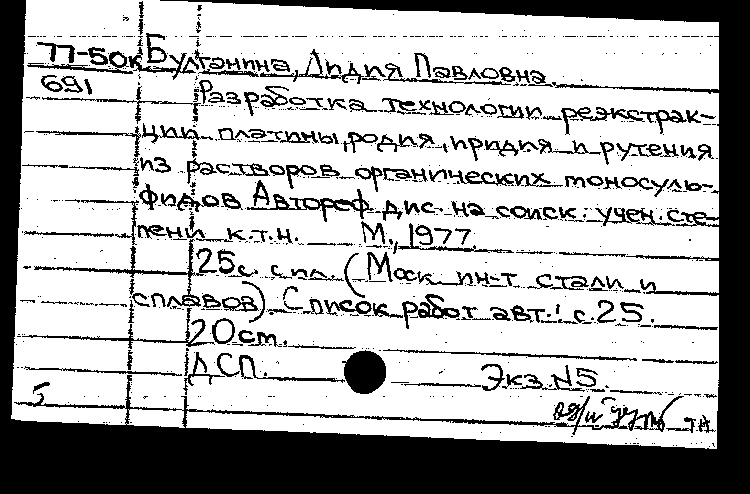 77-50к Булганина, Лидия Павловна.
691 Разработка технологии реэкстрак-
ции платины, родия, иридия и рутения
из растворов органических моносуль-
фидов Автореф. дис. на соиск. учен. сте-
пени к.т.н. М., 1977.
25с. с ил. (Моск. ин-т стали и
сплавов). Список работ авт.: с. 25.
20см.
ДСП. Экз. N5.
5